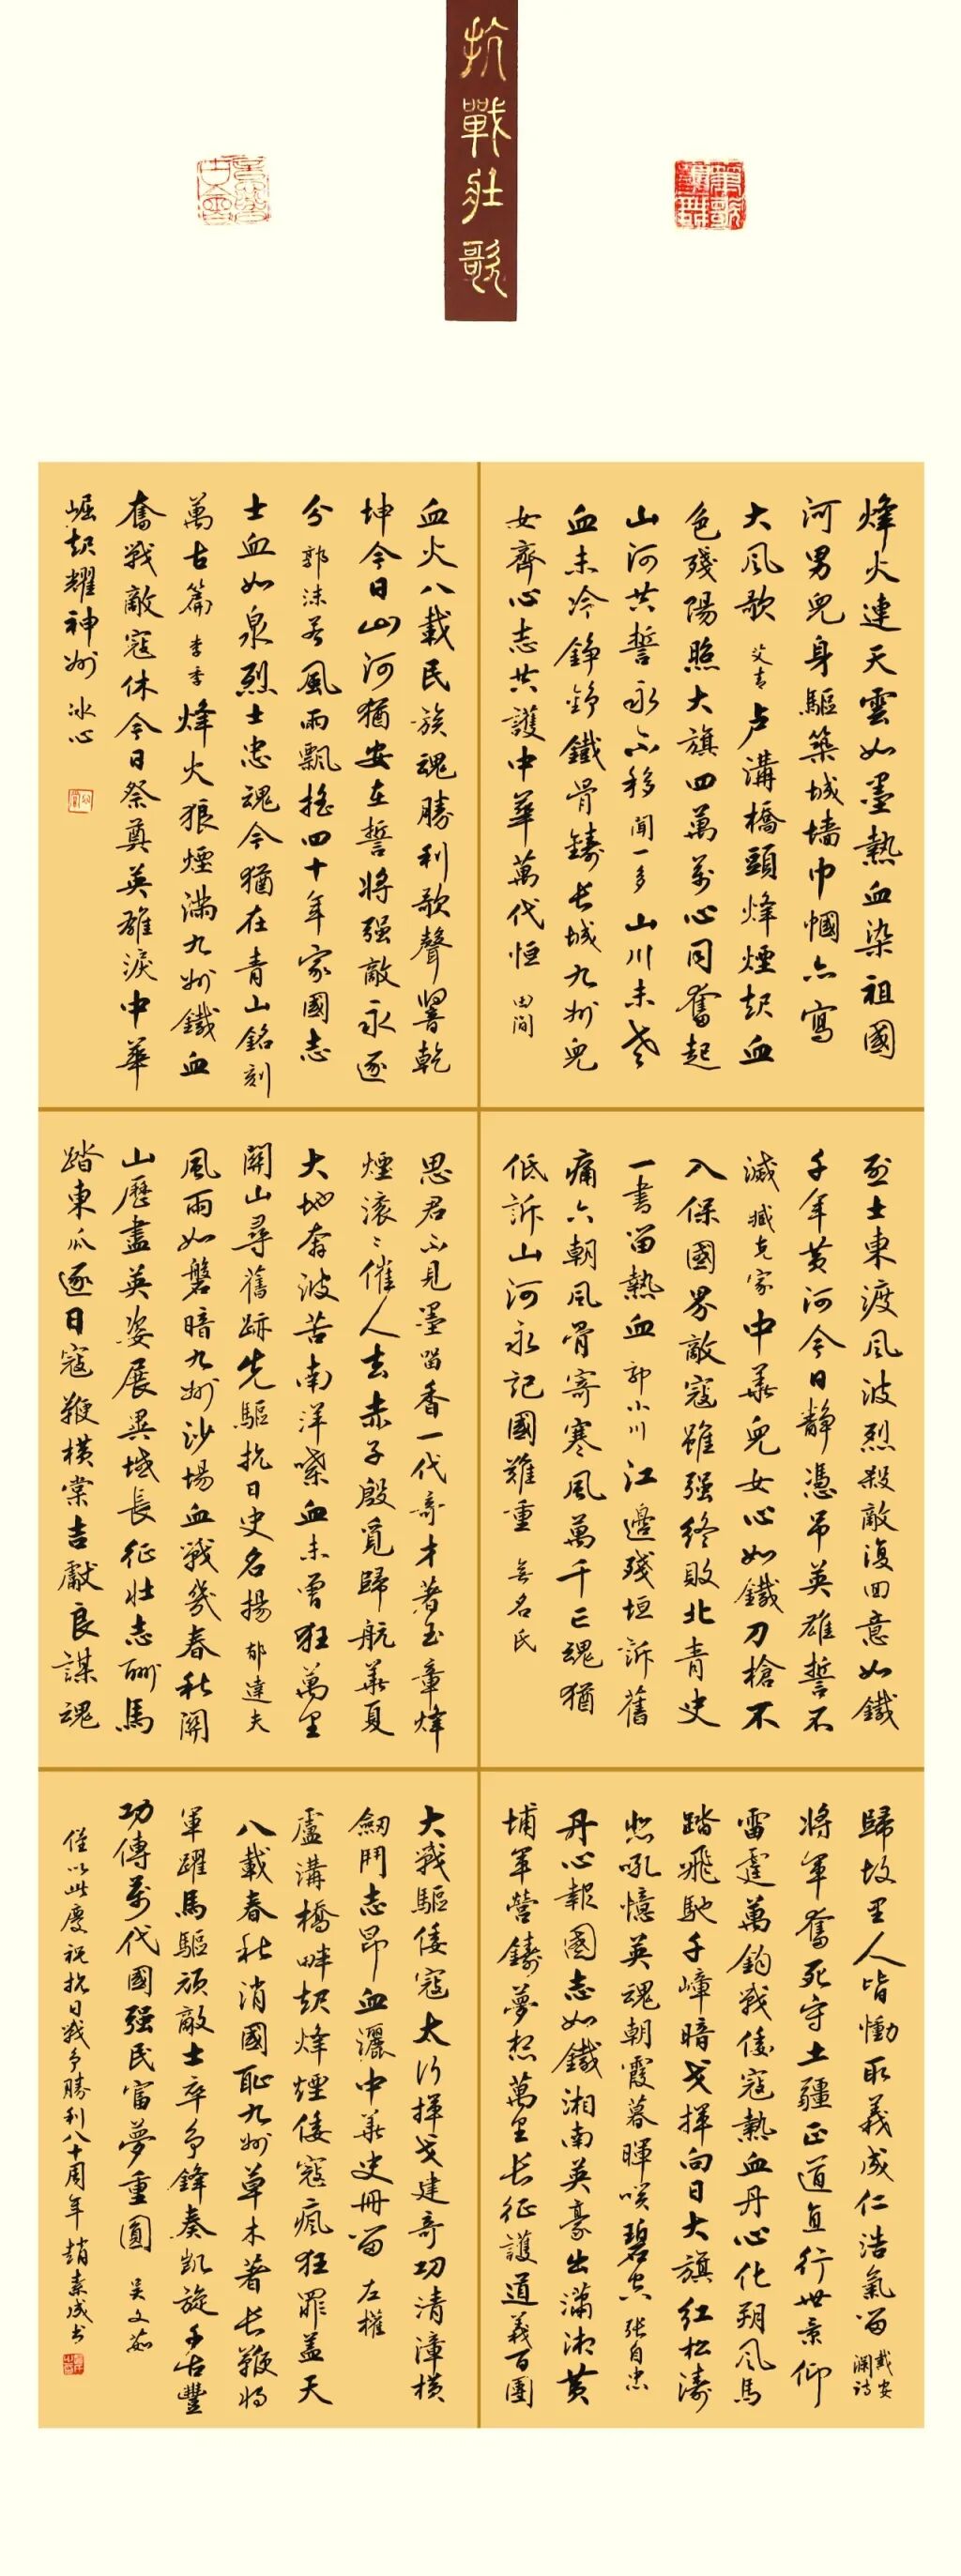 抗戰壯歌
烽火連天雲如墨熱血染祖國
河男兒身驅築城墙巾幗亦寫
大風歌 艾青 卢溝橋頭烽煙起血
色殘陽照大旗四萬萬心同奮起
山河共誓永不移 聞一多 山川未老
血未冷錚錚鐵骨鑄長城九州兒
女齊心志共護中華萬代恒 田間
血火八載民族魂勝利歌聲響乾
坤今日山河猶安在誓將强敵永逐
分 郭沫若 風雨飄搖四十年家國志
士血如泉烈士忠魂今猶在青山銘刻
萬古篇 李季 烽火狼煙滿九州鐵血
奮戰敵寇休今日祭奠英雄淚中華
崛起耀神州 冰心
烈士東渡風波烈殺敵復回意如鐵
千年黄河今日靜憑吊英雄誓不
滅 臧克家 中華兒女心如鐵刀槍不
入保國界敵寇雖强終敗北青史
一書留熱血 郭小川 江邊殘垣訴舊
痛六朝風骨寄寒風萬千亡魂猶
低訴山河永記國難重 無名氏
思君不見墨留香一代奇才著玉章烽
煙滚々催人去赤子殷覓歸航華夏
大地奔波苦南洋喋血未曾狂萬里
關山尋舊跡先驅抗日史名揚 郁達夫
風雨如磐暗九州沙場血戰幾春秋關
山歷盡英姿展異域長征壮志酬馬
踏東瓜逐日寇鞭横棠吉獻良謀魂
歸故里人皆慟取義成仁浩氣留 戴安瀾詩
將軍奮死守土疆正道直行世景仰
雷霆萬鈞戰倭寇熱血丹心化朔風馬
踏飛馳千嶂暗戈揮向日大旗红松濤
怒吼憶英魂朝霞暮暉咲碧空 张自忠
丹心報國志如鐵湘南英豪出瀟湘黄
埔軍營鑄夢想萬里长征護道義百團
大戰驅倭寇太行揮戈建奇功清漳横
劒鬥志昂血灑中華史冊留 左權
盧溝橋畔起烽煙倭寇瘋狂罪盖天
八載春秋消國耻九州草木著长鞭將
軍躍馬驅頑敵士卒争鋒奏凱旋千古豐
功傳萬代國强民富夢重圓 吴文茹
僅以此慶祝抗日戰争勝利八十周年 趙素成书